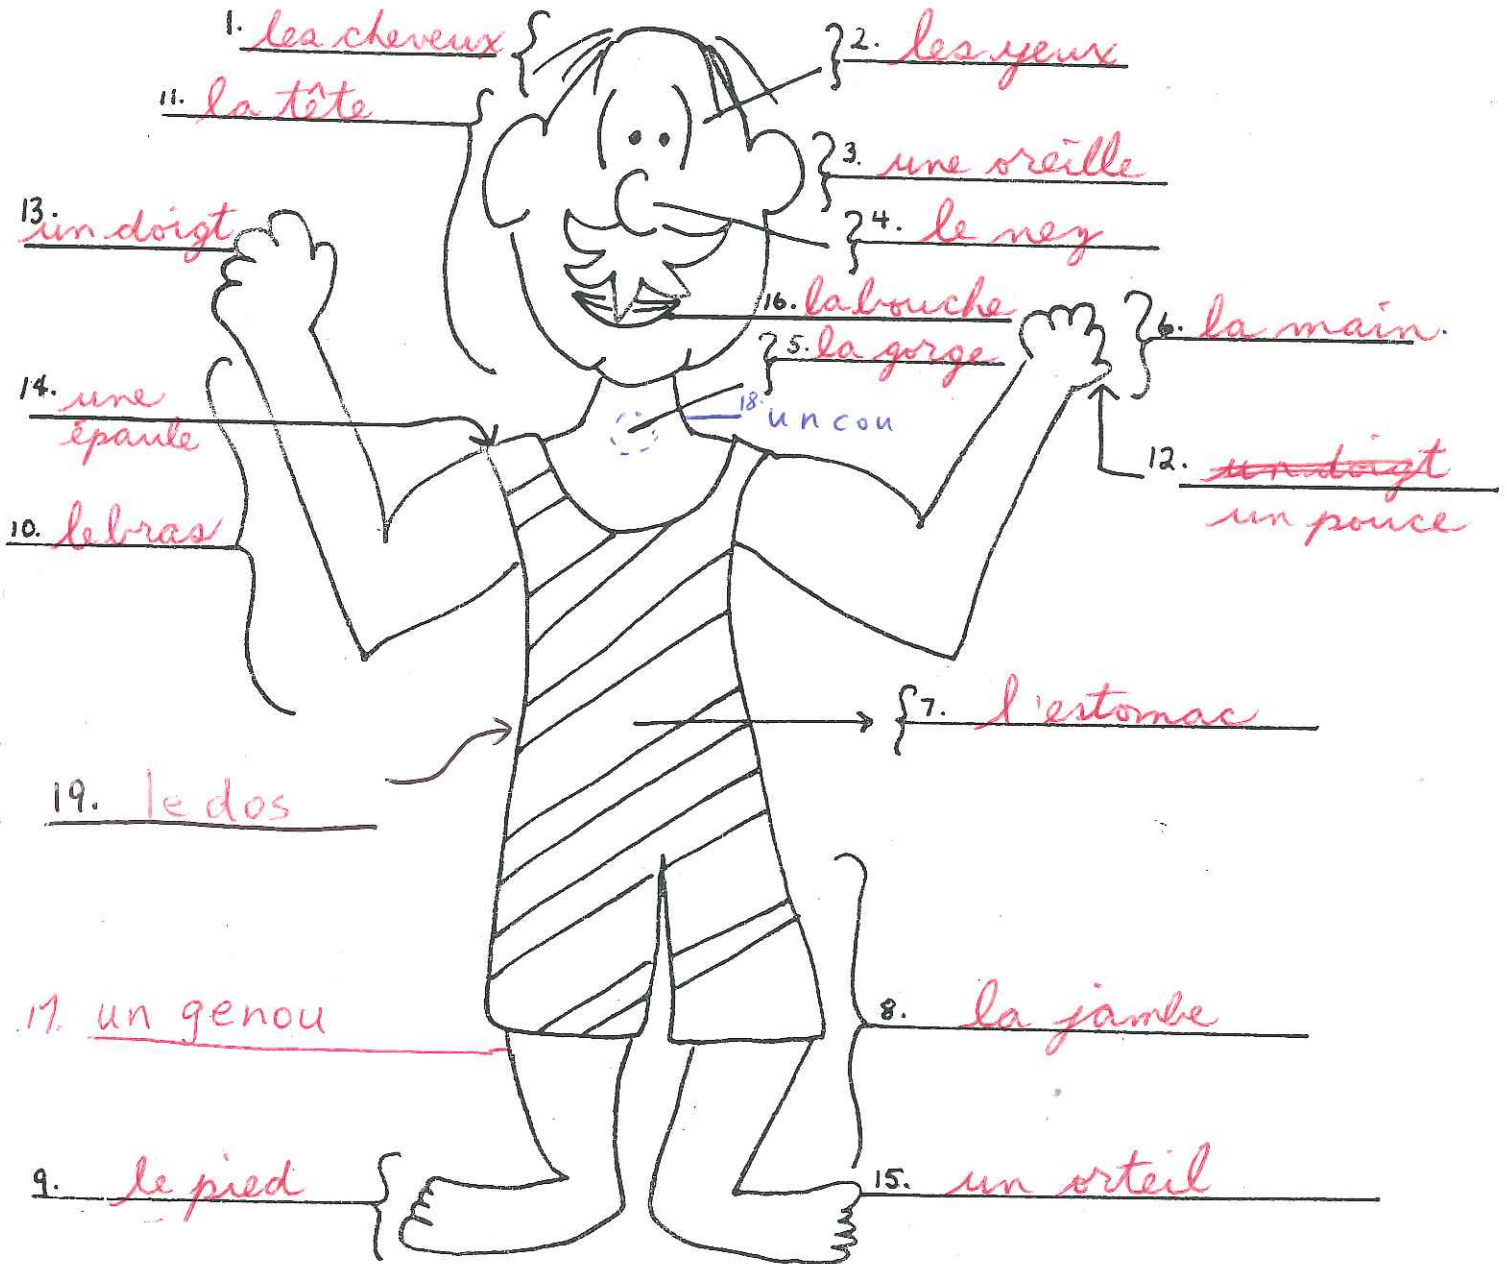 1. les cheveux
2. les yeux
11. la tête
3. une oreille
13. un doigt
4. le nez
16. la bouche
6. la main.
5. la gorge
14. une
épaule
18. un cou
12. un doigt
un pouce
10. le bras
7. l'estomac
19. le dos
17. un genou
8. la jambe
9. le pied
15. un orteil